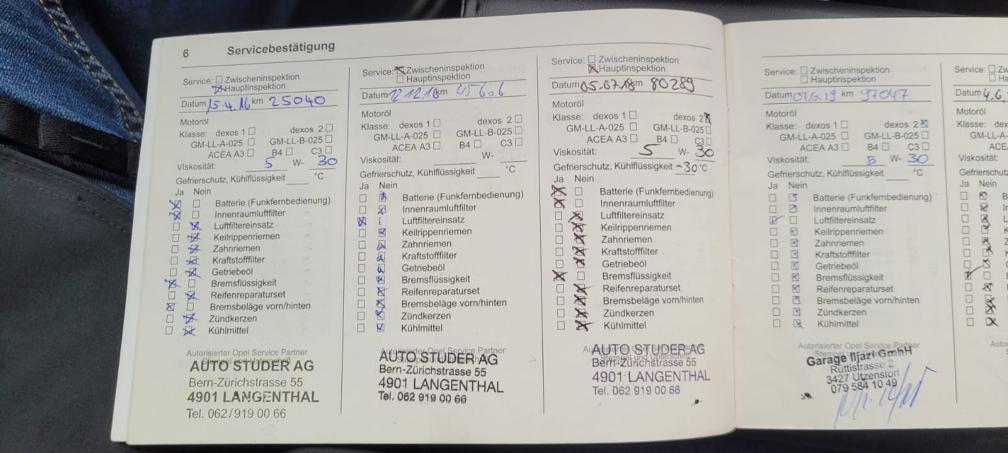 6 Servicebestätigung
Service: Zwischeninspektion
Hauptinspektion
Datum 15.4.16 km 25040
Motoröl
Klasse: dexos 1 dexos 2
GM-LL-A-025 GM-LL-B-025
ACEA A3 B4 C3
Viskosität: 5 W- 30
Gefrierschutz, Kühlflüssigkeit °C
Ja Nein
Batterie (Funkfernbedienung)
Innenraumluftfilter
Luftfiltereinsatz
Keilrippenriemen
Zahnriemen
Kraftstofffilter
Getriebeöl
Bremsflüssigkeit
Reifenreparaturset
Bremsbeläge vorn/hinten
Zündkerzen
Kühlmittel
Autorisierter Opel Service Partner
AUTO STUDER AG
Bern-Zürichstrasse 55
4901 LANGENTHAL
Tel. 062/919 00 66
Service: Zwischeninspektion
Hauptinspektion
Datum km
Motoröl
Klasse: dexos 1 dexos 2
GM-LL-A-025 GM-LL-B-025
ACEA A3 B4 C3
Viskosität: W-
Gefrierschutz, Kühlflüssigkeit °C
Ja Nein
Batterie (Funkfernbedienung)
Innenraumluftfilter
Luftfiltereinsatz
Keilrippenriemen
Zahnriemen
Kraftstofffilter
Getriebeöl
Bremsflüssigkeit
Reifenreparaturset
Bremsbeläge vorn/hinten
Zündkerzen
Kühlmittel
AUTO STUDER AG
Bern-Zürichstrasse 55
4901 LANGENTHAL
Tel. 062 919 00 66
Service: Zwischeninspektion
Hauptinspektion
Datum 05.07.18 km 80289
Motoröl
Klasse: dexos 1 dexos 2
GM-LL-A-025 GM-LL-B-025
ACEA A3 B4 C3
Viskosität: 5 W- 30
Gefrierschutz, Kühlflüssigkeit -30°C
Ja Nein
Batterie (Funkfernbedienung)
Innenraumluftfilter
Luftfiltereinsatz
Keilrippenriemen
Zahnriemen
Kraftstofffilter
Getriebeöl
Bremsflüssigkeit
Reifenreparaturset
Bremsbeläge vorn/hinten
Zündkerzen
Kühlmittel
AUTO STUDER AG
Bern-Zürichstrasse 55
4901 LANGENTHAL
Tel. 062 919 00 66
Service: Zwischeninspektion
Hauptinspektion
Datum km 97047
Motoröl
Klasse: dexos 1 dexos 2
GM-LL-A-025 GM-LL-B-025
ACEA A3 B4 C3
Viskosität: 5 W- 30
Gefrierschutz, Kühlflüssigkeit °C
Ja Nein
Batterie (Funkfernbedienung)
Innenraumluftfilter
Luftfiltereinsatz
Keilrippenriemen
Zahnriemen
Kraftstofffilter
Getriebeöl
Bremsflüssigkeit
Reifenreparaturset
Bremsbeläge vorn/hinten
Zündkerzen
Kühlmittel
Autorisierter Opel Service Partner
Garage Iljazi GmbH
3427 Utzenstorf
079 584 10 49
Datum
Motoröl
Klasse:
Ja Nein